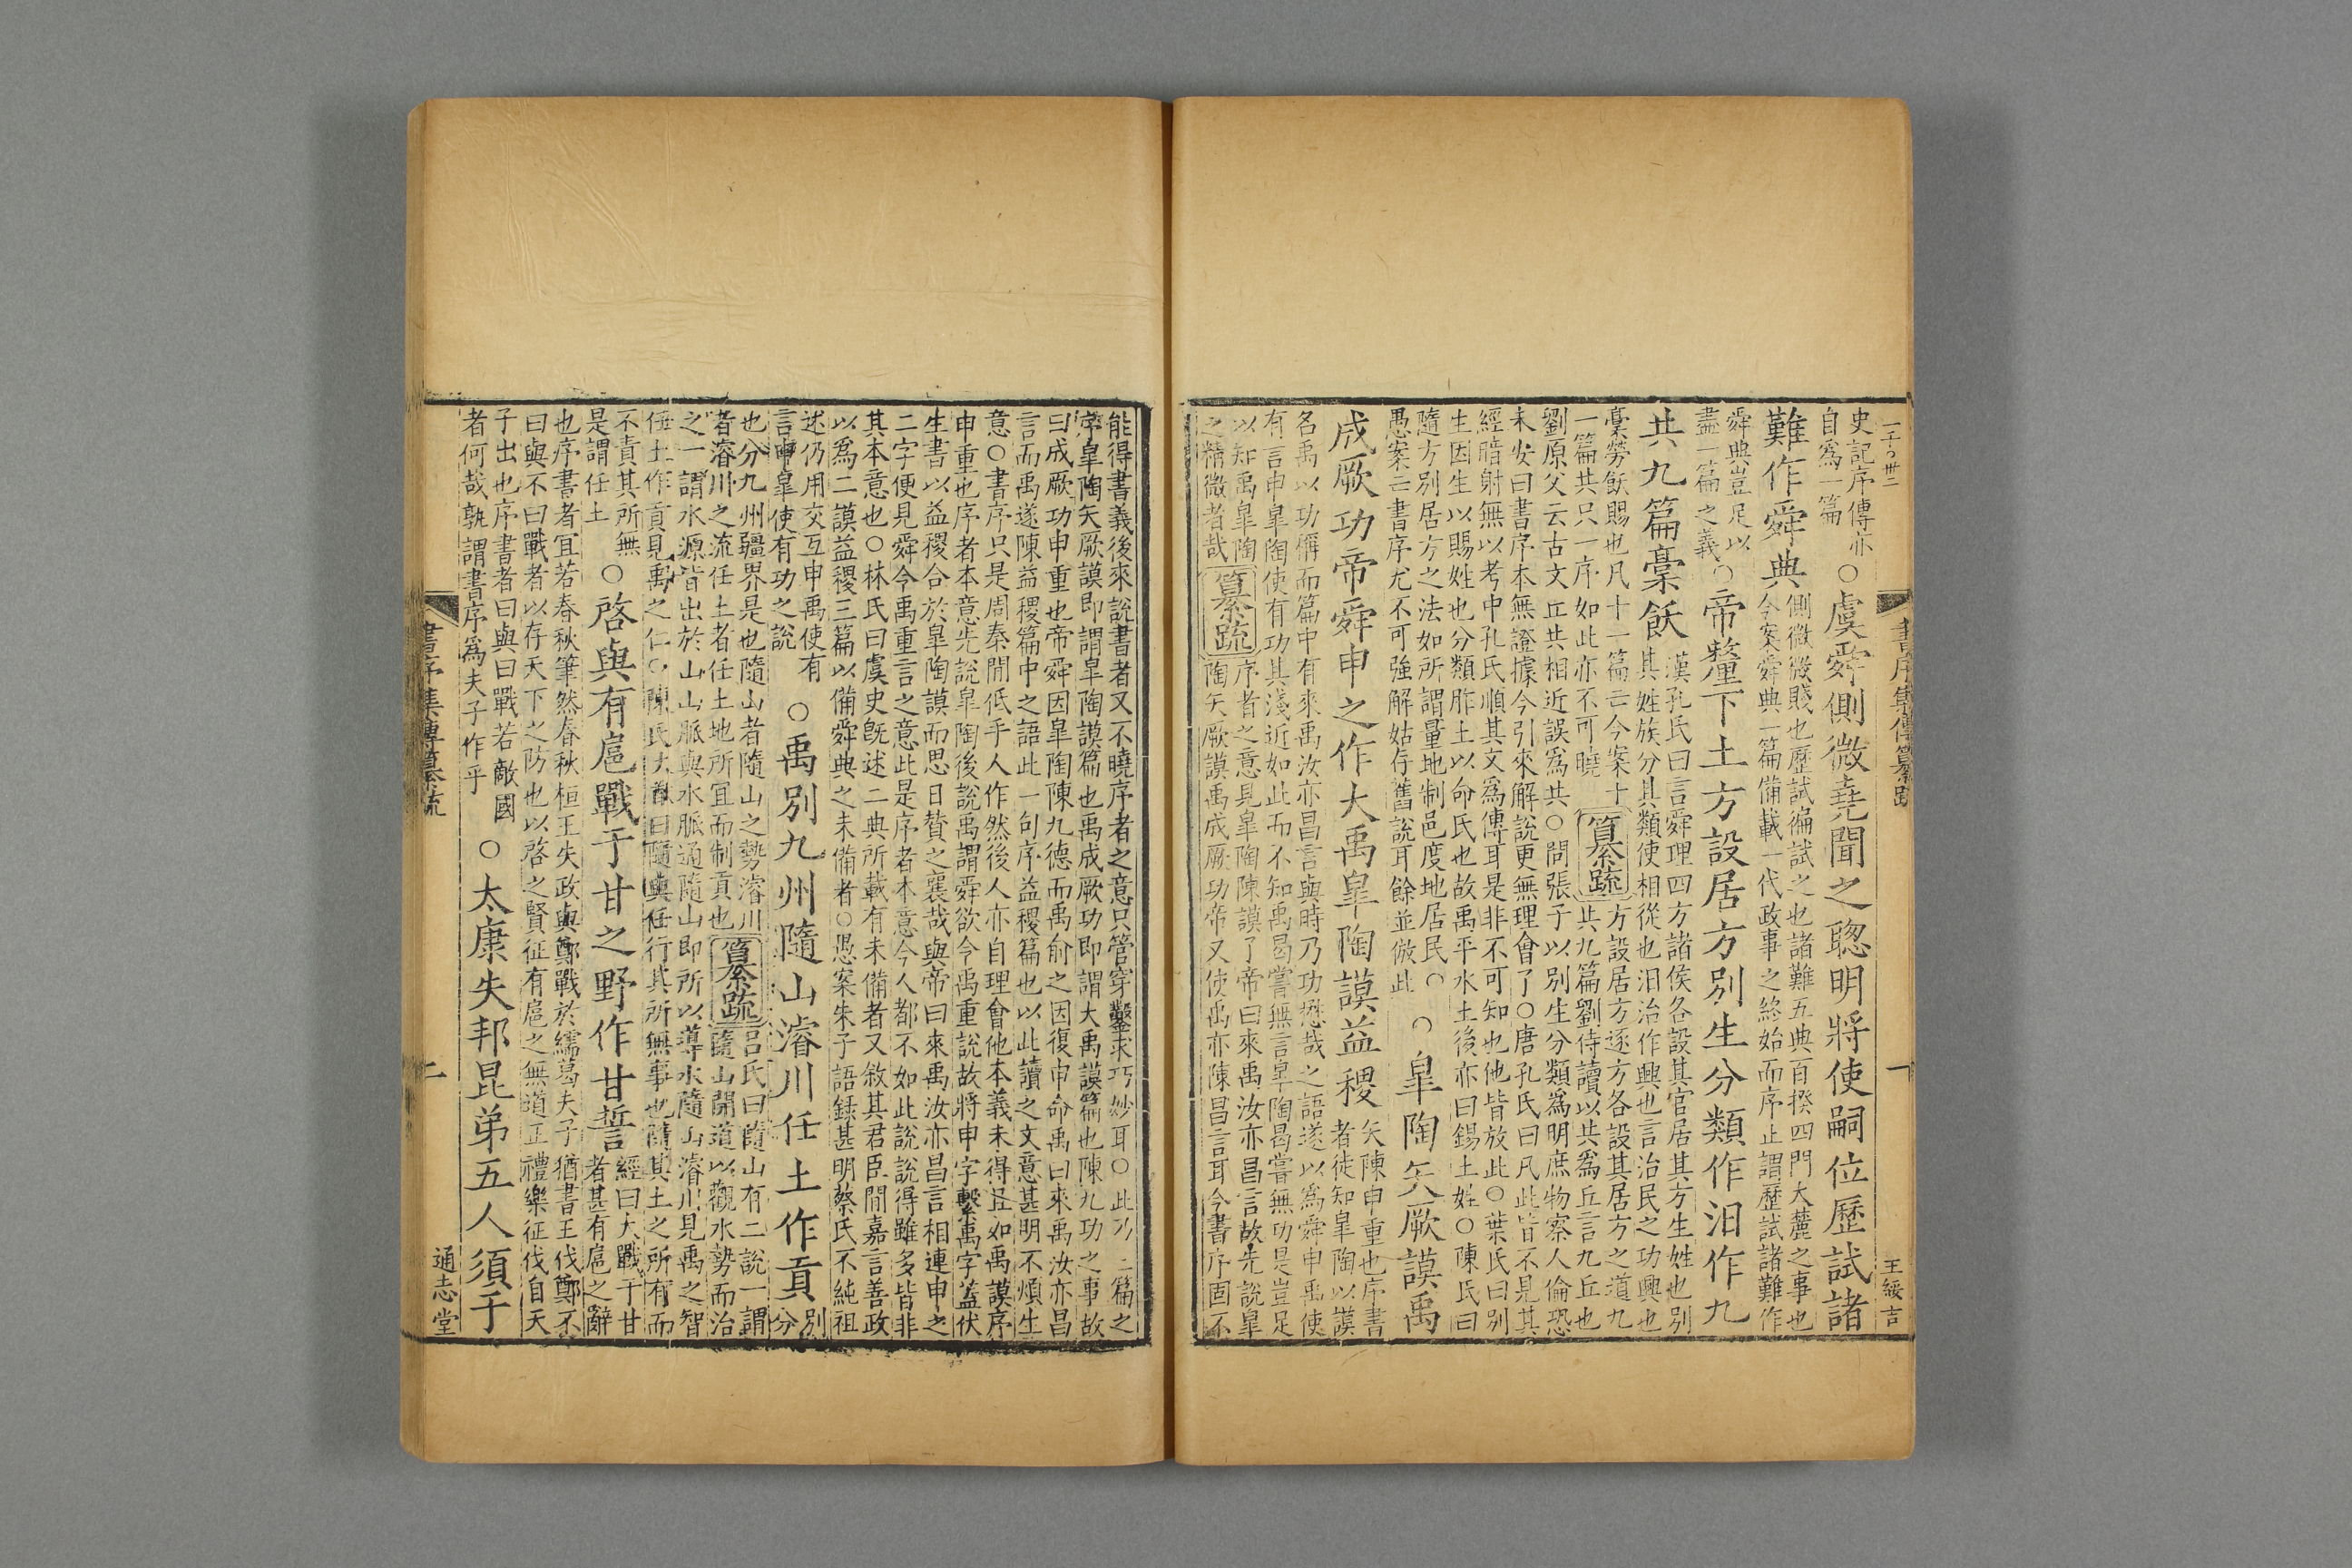 一千〇卅二
書序集傳纂疏
一
王綏吉
史記序傳亦
自爲一篇
○虞舜側微堯聞之聰明將使嗣位歷試諸
難作舜典
側微微賤也歷試徧試之也諸難五典百揆四門大麓之事也
今案舜典一篇備載一代政事之終始而序止謂歷試諸難作
舜典豈足以
盡一篇之義
○帝釐下土方設居方別生分類作汨作九
共九篇槀飫
漢孔氏曰言舜理四方諸侯各設其官居其方生姓也別
其姓族分其類使相從也汨治作興也言治民之功興也
槀勞飫賜也凡十一篇亡今案十
一篇共只一序如此亦不可曉
纂疏
方設居方逐方各設其居方之道九
共九篇劉侍讀以共爲丘言九丘也
劉原父云古文丘共相近誤爲共○問張子以別生分類爲明庶物察人倫恐
未安曰書序本無證據今引來解說更無理會了○唐孔氏曰凡此皆不見其
經暗射無以考中孔氏順其文爲傳耳是非不可知也他皆放此○葉氏曰別
生因生以賜姓也分類胙土以命氏也故禹平水土後亦曰錫土姓○陳氏曰
隨方別居方之法如所謂量地制邑度地居民○
愚案亡書序尤不可強解姑存舊說耳餘並倣此
○皐陶矢厥謨禹
成厥功帝舜申之作大禹皐陶謨益稷
矢陳申重也序書
者徒知皐陶以謨
名禹以功稱而篇中有來禹汝亦昌言與時乃功懋哉之語遂以爲舜申禹使
有言申皐陶使有功其淺近如此而不知禹曷嘗無言皐陶曷嘗無功是豈足
以知禹皐陶
之精微者哉
纂疏
序者之意見皐陶陳謨了帝曰來禹汝亦昌言故先說皐
陶矢厥謨禹成厥功帝又使禹亦陳昌言耳今書序固不
能得書義後來說書者又不曉序者之意只管穿鑿求巧妙耳○此乃二篇之
序皐陶矢厥謨即謂皐陶謨篇也禹成厥功即謂大禹謨篇也陳九功之事故
曰成厥功申重也帝舜因皐陶陳九德而禹俞之因復申命禹曰來禹汝亦昌
言而禹遂陳益稷篇中之語此一句序益稷篇也以此讀之文意甚明不煩生
意○書序只是周秦閒低手人作然後人亦自理會他本義未得且如禹謨序
申重也序者本意先說皐陶後說禹謂舜欲令禹重說故將申字繫禹字蓋伏
生書以益稷合於皐陶謨而思日贊之襄哉與帝曰來禹汝亦昌言相連申之
二字便見舜今禹重言之意此是序者本意今人都不如此說說得雖多皆非
其本意也○林氏曰虞史旣述二典所載有未備者又敘其君臣閒嘉言善政
以爲二謨益稷三篇以備舜典之未備者○愚案朱子語錄甚明蔡氏不純祖
述仍用交互申禹使有
言申皐使有功之說
○禹別九州隨山濬川任土作貢
別
分
也分九州疆界是也隨山者隨山之勢濬川
者濬川之流任土者任土地所宜而制貢也
纂疏
呂氏曰隨山有二說一謂
隨山開道以觀水勢而治
之一謂水源皆出於山山脈與水脈通隨山即所以導水隨山濬川見禹之智
任土作貢見禹之仁○陳氏大猷曰隨與任行其所無事也隨其土之所有而
不責其所無
是謂任土
○啓與有扈戰于甘之野作甘誓
經曰大戰于甘
者甚有扈之辭
也序書者宜若春秋筆然春秋桓王失政與鄭戰於繻葛夫子猶書王伐鄭不
曰與不曰戰者以存天下之防也以啓之賢征有扈之無道正禮樂征伐自天
子出也序書者曰與曰戰若敵國
者何哉孰謂書序爲夫子作乎
○太康失邦昆弟五人須于
書序集傳纂疏
二
通志堂